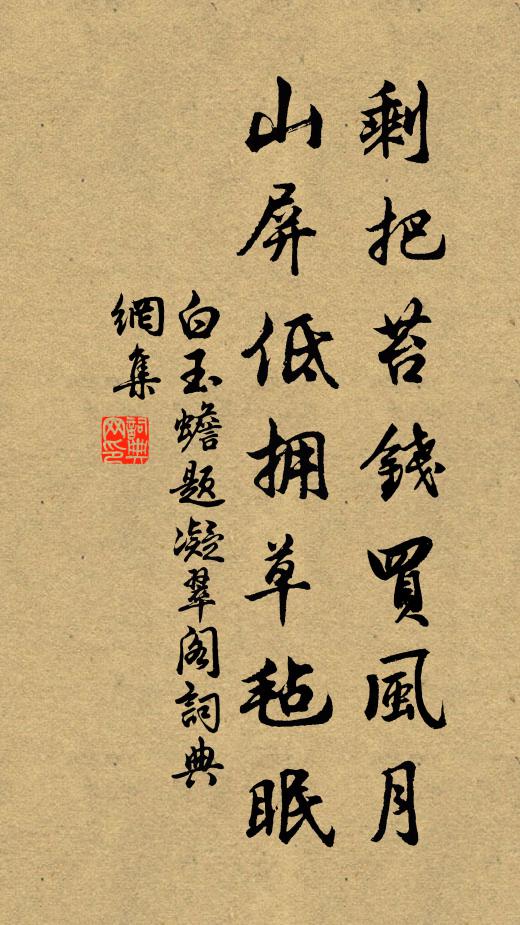 剩把苔錢買風月
山屏低拥草毡眠
白玉蟾题凝翠阁詞典
網集
詞典网印